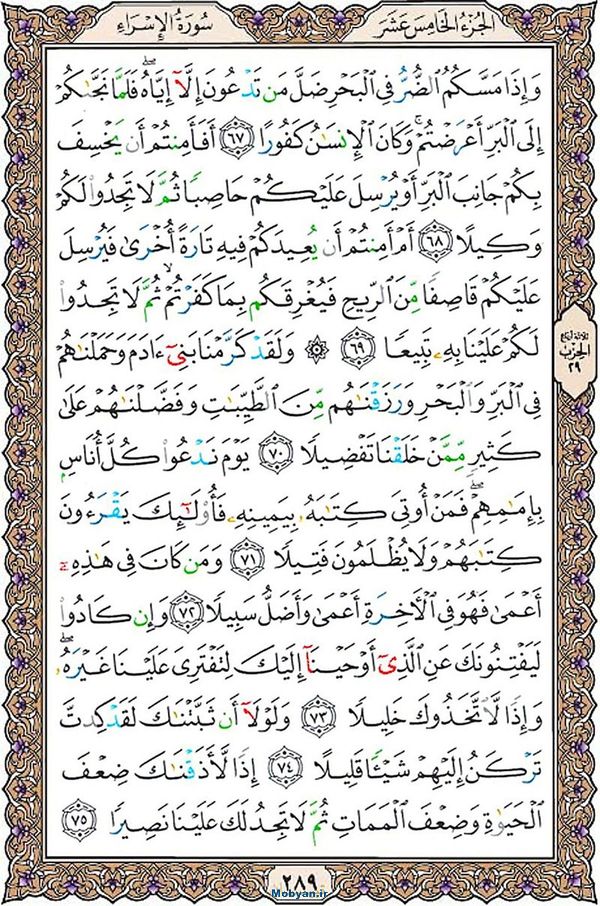 الجُزءُ الخَامِسَ عَشَرَ
سُورَةُ الإِسْرَاءِ
وَإِذَا مَسَّكُمُ الضُّرُّ فِي الْبَحْرِ ضَلَّ مَن تَدْعُونَ إِلَّآ إِيَّاهُ ۖ فَلَمَّا نَجَّىٰكُمْ
إِلَى الْبَرِّ أَعْرَضْتُمْ ۚ وَكَانَ الْإِنسَٰنُ كَفُورًا ﴿٦٧﴾ أَفَأَمِنتُمْ أَن يَخْسِفَ
بِكُمْ جَانِبَ الْبَرِّ أَوْ يُرْسِلَ عَلَيْكُمْ حَاصِبًا ثُمَّ لَا تَجِدُوا لَكُمْ
وَكِيلًا ﴿٦٨﴾ أَمْ أَمِنتُمْ أَن يُعِيدَكُمْ فِيهِ تَارَةً أُخْرَىٰ فَيُرْسِلَ
عَلَيْكُمْ قَاصِفًا مِّنَ الرِّيحِ فَيُغْرِقَكُم بِمَا كَفَرْتُمْ ۙ ثُمَّ لَا تَجِدُوا
لَكُمْ عَلَيْنَا بِهِۦ تَبِيعًا ﴿٦٩﴾ ۞ وَلَقَدْ كَرَّمْنَا بَنِىٓ ءَادَمَ وَحَمَلْنَٰهُمْ
فِي الْبَرِّ وَالْبَحْرِ وَرَزَقْنَٰهُم مِّنَ الطَّيِّبَٰتِ وَفَضَّلْنَٰهُمْ عَلَىٰ
كَثِيرٍ مِّمَّنْ خَلَقْنَا تَفْضِيلًا ﴿٧٠﴾ يَوْمَ نَدْعُوا كُلَّ أُنَاسٍ
بِإِمَٰمِهِمْ ۖ فَمَنْ أُوتِىَ كِتَٰبَهُۥ بِيَمِينِهِۦ فَأُولَٰٓئِكَ يَقْرَءُونَ
كِتَٰبَهُمْ وَلَا يُظْلَمُونَ فَتِيلًا ﴿٧١﴾ وَمَن كَانَ فِى هَٰذِهِۦٓ
أَعْمَىٰ فَهُوَ فِي الْأَخِرَةِ أَعْمَىٰ وَأَضَلُّ سَبِيلًا ﴿٧٢﴾ وَإِن كَادُوا
لَيَفْتِنُونَكَ عَنِ الَّذِىٓ أَوْحَيْنَآ إِلَيْكَ لِتَفْتَرِىَ عَلَيْنَا غَيْرَهُۥ ۖ
وَإِذًا لَّاتَّخَذُوكَ خَلِيلًا ﴿٧٣﴾ وَلَوْلَآ أَن ثَبَّتْنَٰكَ لَقَدْ كِدتَّ
تَرْكَنُ إِلَيْهِمْ شَيْـًٔا قَلِيلًا ﴿٧٤﴾ إِذًا لَّأَذَقْنَٰكَ ضِعْفَ
الْحَيَوٰةِ وَضِعْفَ الْمَمَاتِ ثُمَّ لَا تَجِدُ لَكَ عَلَيْنَا نَصِيرًا ﴿٧٥﴾
ثلاثة أرباع
الحزب
٢٩
٢٨٩
Mobyan.ir